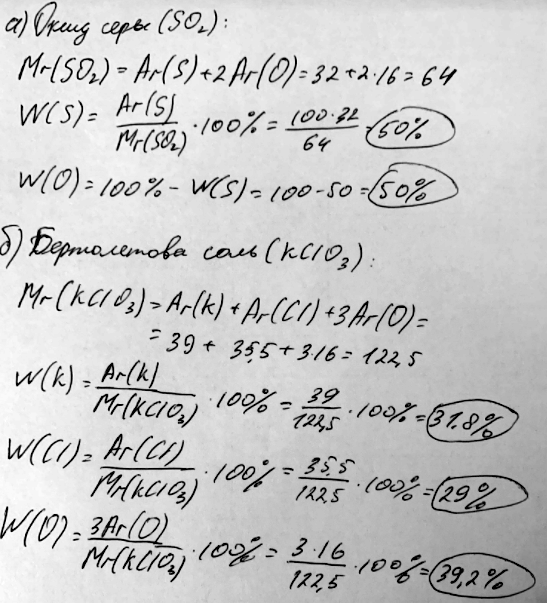 а) Оксид серы (SO₂):
Mr(SO₂) = Ar(S) + 2Ar(O) = 32 + 2·16 = 64
W(S) = Ar(S)/Mr(SO₂) · 100% = 100·32/64 = 50%
W(O) = 100% - W(S) = 100 - 50 = 50%
б) Бертолетова соль (KClO₃):
Mr(KClO₃) = Ar(K) + Ar(Cl) + 3Ar(O) =
= 39 + 35,5 + 3·16 = 122,5
W(K) = Ar(K)/Mr(KClO₃) · 100% = 39/122,5 · 100% = 31.8%
W(Cl) = Ar(Cl)/Mr(KClO₃) · 100% = 35,5/122,5 · 100% = 29%
W(O) = 3Ar(O)/Mr(KClO₃) · 100% = 3·16/122,5 · 100% = 39,2%